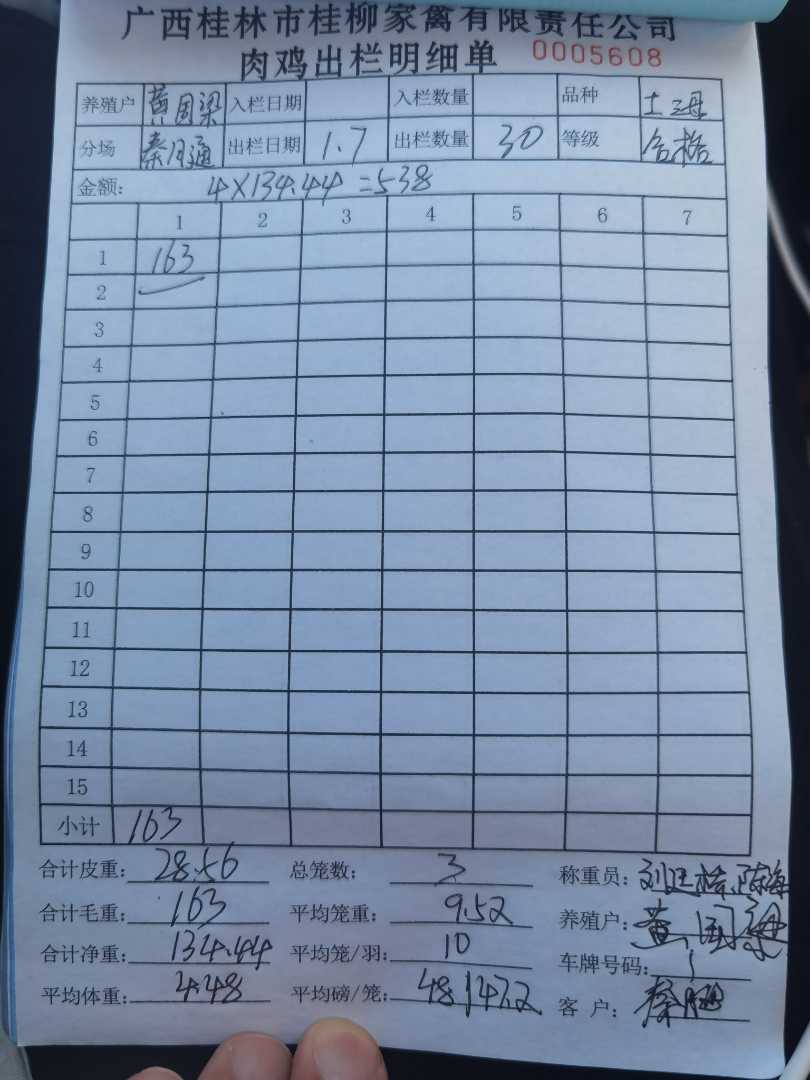 广西桂林市桂柳家禽有限责任公司
肉鸡出栏明细单 0005608
养殖户 黄国梁 入栏日期 入栏数量 品种 土三母
分场 秦月通 出栏日期 1.7 出栏数量 30 等级 合格
金额: 4×134.44=538
1 2 3 4 5 6 7
1 163
2
3
4
5
6
7
8
9
10
11
12
13
14
15
小计 163
合计皮重: 28.56 总笼数: 3 称重员: 刘廷格、陈海
合计毛重: 163 平均笼重: 9.52 养殖户: 黄国梁
合计净重: 134.44 平均笼/羽: 10 车牌号码:
平均体重: 4.48 平均磅/笼: 48 147.2 客 户: 秦